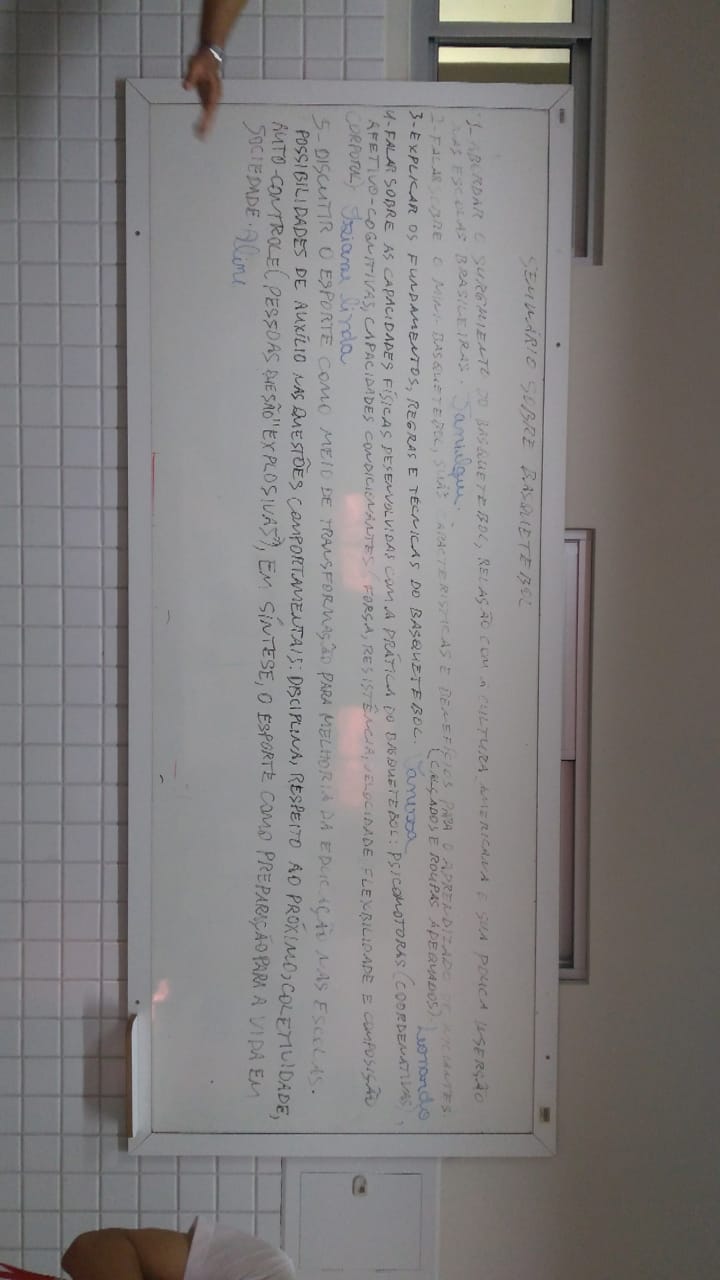 SEMINÁRIO SOBRE BASQUETEBOL
1- ABORDAR O SURGIMENTO DO BASQUETEBOL, RELAÇÃO COM A CULTURA AMERICANA E SUA POUCA INSERÇÃO
NAS ESCOLAS BRASILEIRAS.
2- FALAR SOBRE O MINI-BASQUETEBOL, SUAS CARACTERÍSTICAS E BENEFÍCIOS PARA O APRENDIZADO DE INICIANTES.
(CALÇADOS E ROUPAS ADEQUADOS) Leonardo
3- EXPLICAR OS FUNDAMENTOS, REGRAS E TÉCNICAS DO BASQUETEBOL. Vanessa
4- FALAR SOBRE AS CAPACIDADES FÍSICAS DESENVOLVIDAS COM A PRÁTICA DO BASQUETEBOL: PSICOMOTORAS (COORDENATIVAS),
AFETIVO-COGNITIVAS, CAPACIDADES CONDICIONANTES (FORÇA, RESISTÊNCIA, VELOCIDADE FLEXBILIDADE E COMPOSIÇÃO
CORPORAL) linda
5- DISCUTIR O ESPORTE COMO MEIO DE TRANSFORMAÇÃO PARA MELHORIA DA EDUCAÇÃO NAS ESCOLAS.
POSSIBILIDADES DE AUXÍLIO NAS QUESTÕES COMPORTAMENTAIS: DISCIPLINA, RESPEITO AO PRÓXIMO, COLETIVIDADE,
AUTO-CONTROLE (PESSOAS QUE SÃO "EXPLOSIVAS"), EM SÍNTESE, O ESPORTE COMO PREPARAÇÃO PARA A VIDA EM
SOCIEDADE. Aline